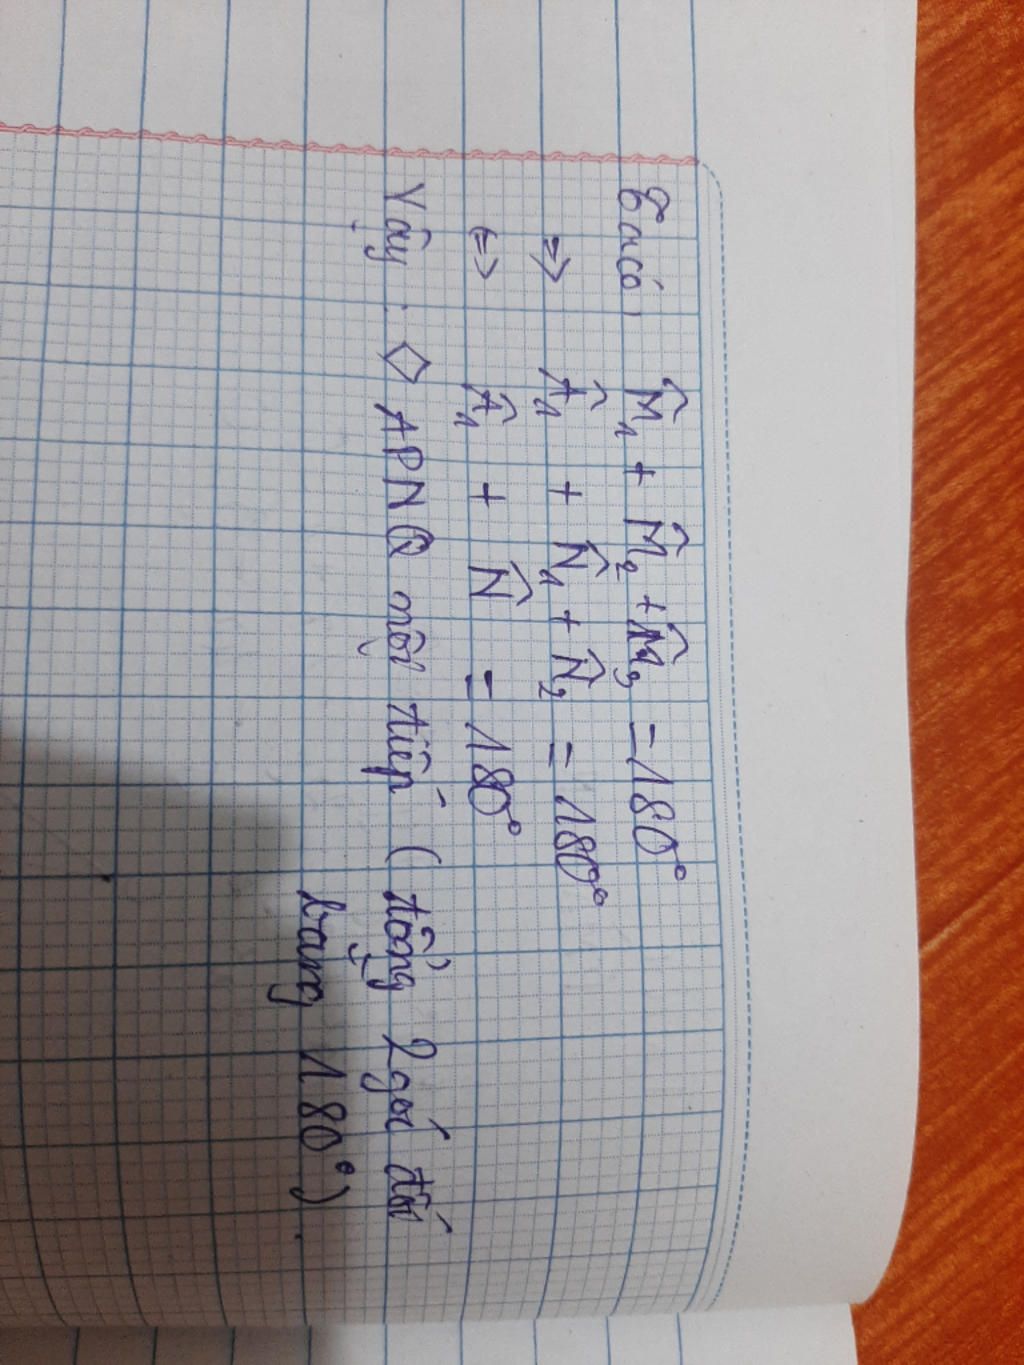 Ta có, M̂₁ + M̂₂ + M̂₃ = 180°
=> Â₁ + N̂₁ + N̂₂ = 180°
<=> Â₁ + N̂ = 180°
Vậy : ◇ APNQ nội tiếp (tổng 2 góc đối
bằng 180°)